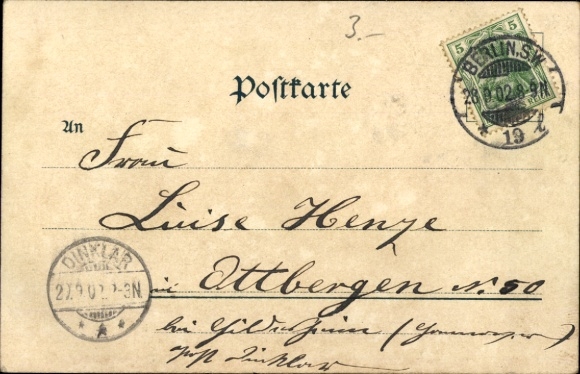 3.-
5 5
BERLIN.S.W.
28.9.02.8-9N.
* 19 z
Postkarte
An
Frau
Luise Henze
in Ottbergen N. 50
bei Hildesheim (Hannover)
Post Dinklar
DINKLAR
27.9.02.2-3N.
* * *